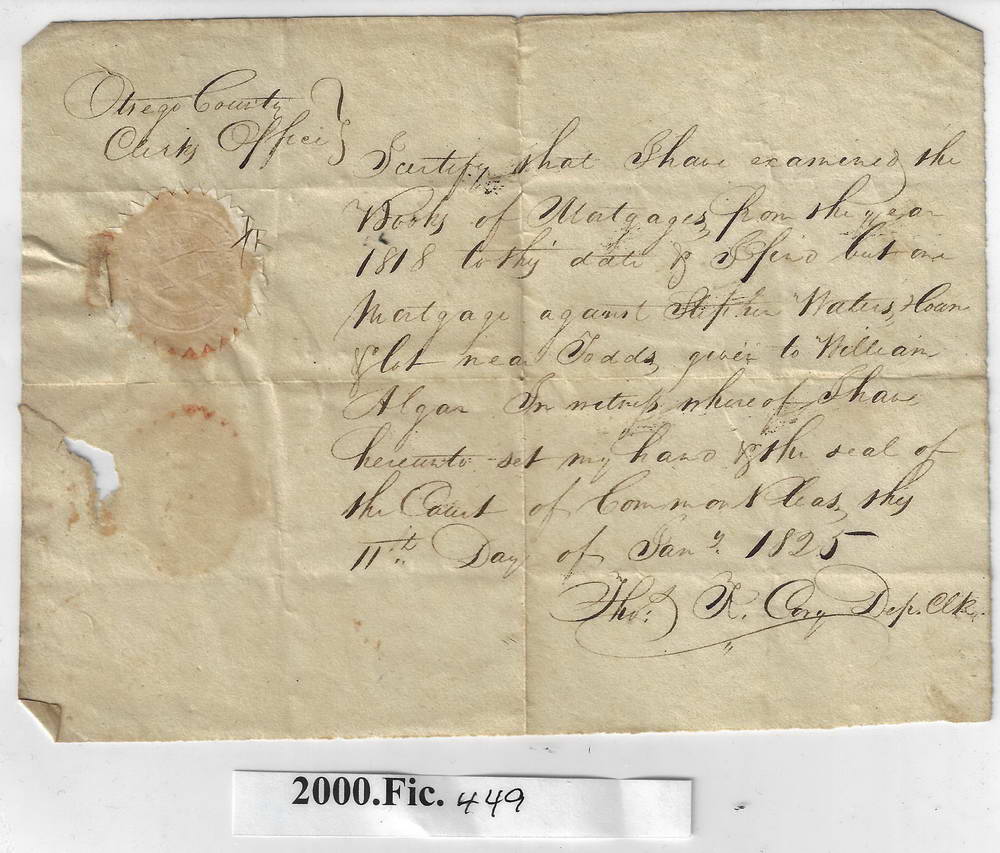 Otsego County }
Clerks Office }
I certify that I have examined the
Books of Mortgages, from the year
1818 to this date & I find but one
Mortgage against Stephen Waters,
& lot near Todds, given to William
Algar In witness whereof I have
hereunto set my hand & the seal of
the Court of Common Pleas, this
11th Day of Jany. 1825
Thos. K. Cory Dep. Clk.
2000.Fic. 449